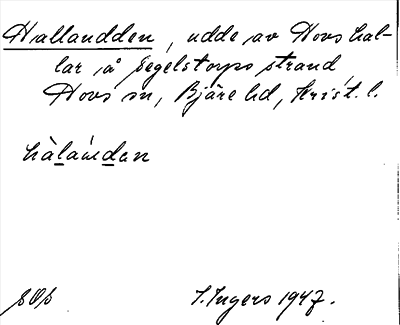 Hallandden, udde av Hovs hal-
lar å Segelstorps strand
Hovs sn, Bjäre hd, Krist. l.
hàlàndan
I. Ingers 1947.